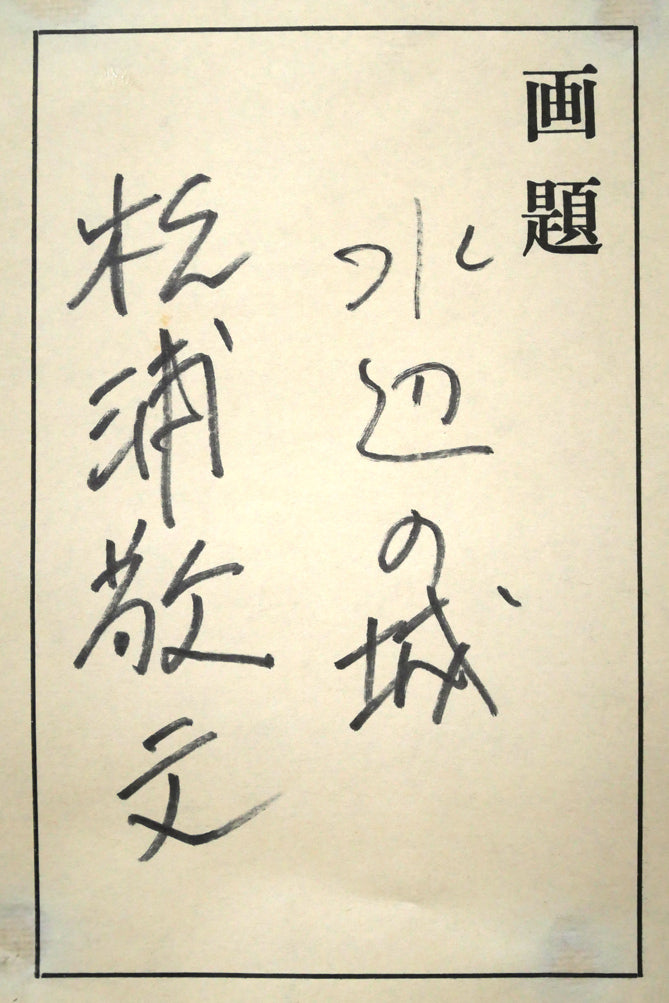 画題
水辺の城
松浦敬文